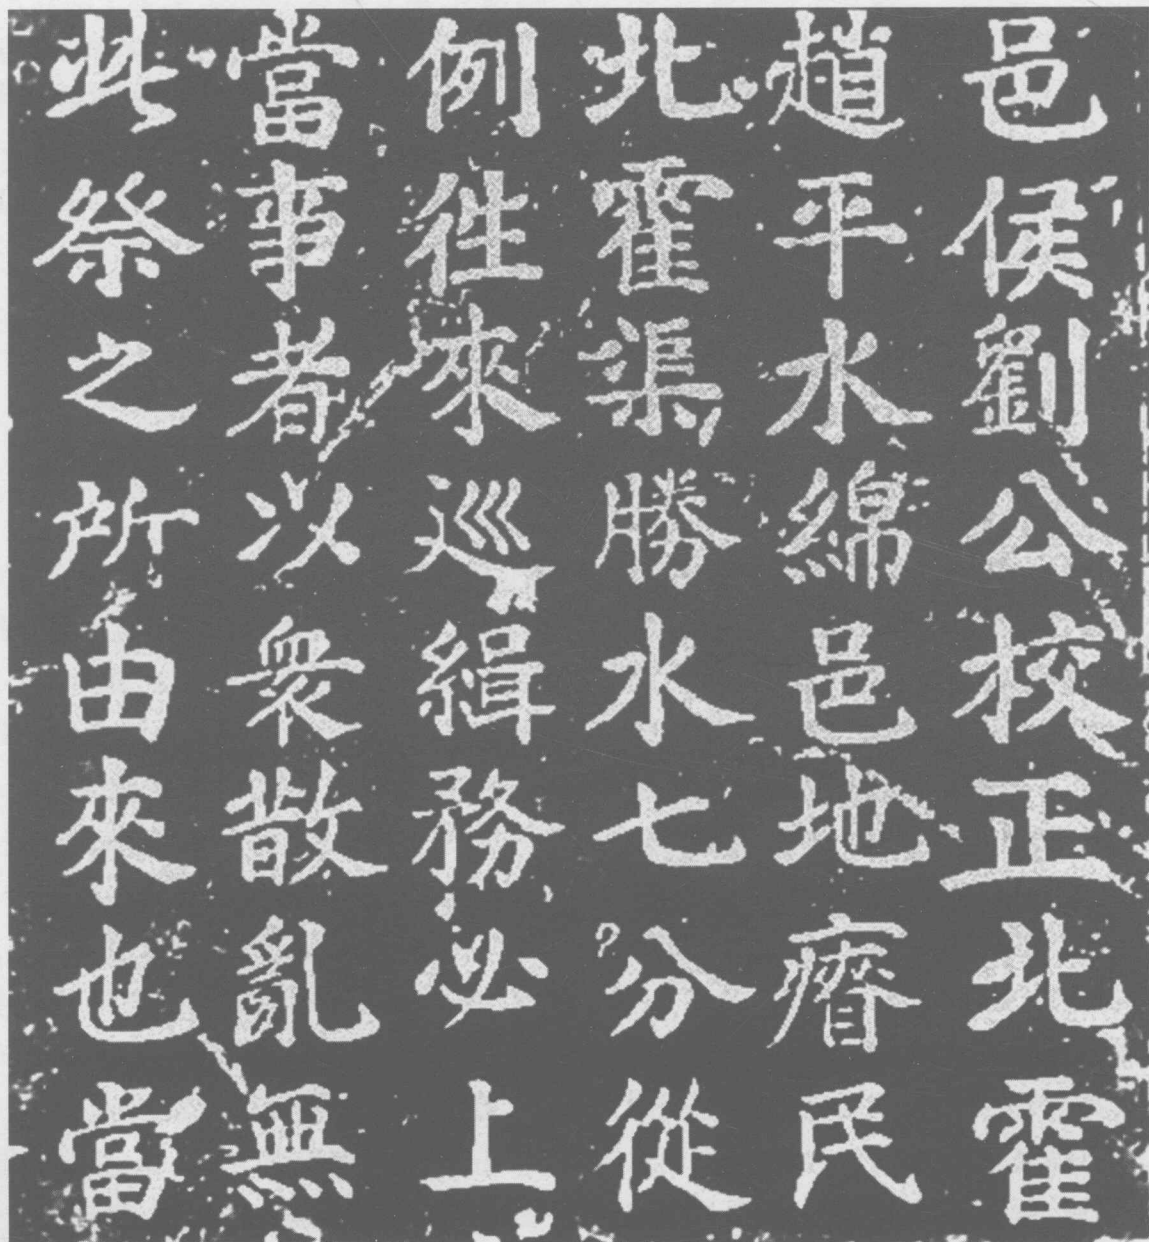 邑侯劉公校正北霍
趙平水綿邑地瘠民
北霍渠勝水七分從
例徃來巡緝務必上
當事者以衆散亂無
此祭之所由來也當